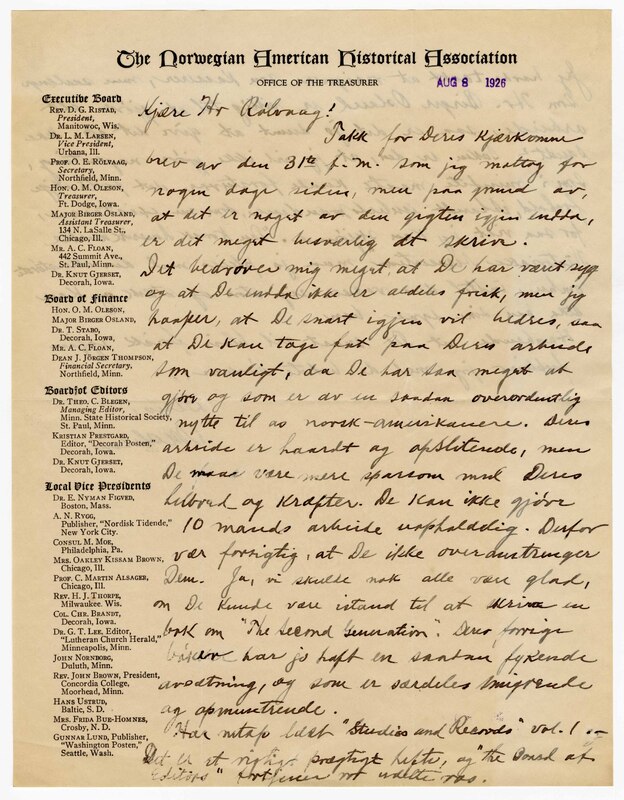 The Norwegian American Historical Association
OFFICE OF THE TREASURER
AUG 8 1926
Executive Board
REV. D. G. RISTAD,
President,
Manitowoc, Wis.
DR. L. M. LARSEN,
Vice President,
Urbana, Ill.
PROF. O. E. RÖLVAAG,
Secretary,
Northfield, Minn.
HON. O. M. OLESON,
Treasurer,
Ft. Dodge, Iowa.
MAJOR BIRGER OSLAND,
Assistant Treasurer,
134 N. LaSalle St.,
Chicago, Ill.
MR. A. C. FLOAN,
442 Summit Ave.,
St. Paul, Minn.
DR. KNUT GJERSET,
Decorah, Iowa.
Board of Finance
HON. O. M. OLESON,
MAJOR BIRGER OSLAND,
DR. T. STABO,
Decorah, Iowa.
MR. A. C. FLOAN,
DEAN J. JÖRGEN THOMPSON,
Financial Secretary,
Northfield, Minn.
Board of Editors
DR. THEO. C. BLEGEN,
Managing Editor,
Minn. State Historical Society,
St. Paul, Minn.
KRISTIAN PRESTGARD,
Editor, "Decorah Posten,"
Decorah, Iowa.
DR. KNUT GJERSET,
Decorah, Iowa.
Local Vice Presidents
DR. E. NYMAN FIGVED,
Boston, Mass.
A. N. RYGG,
Publisher, "Nordisk Tidende,"
New York City.
CONSUL M. MOE,
Philadelphia, Pa.
MRS. OAKLEY KISSAM BROWN,
Chicago, Ill.
PROF. C. MARTIN ALSAGER,
Chicago, Ill.
REV. H. J. THORPE,
Milwaukee. Wis.
COL. CHR. BRANDT,
Decorah, Iowa.
DR. G. T. LEE, Editor,
"Lutheran Church Herald,"
Minneapolis, Minn.
JOHN NORNBORG,
Duluth, Minn.
REV. JOHN BROWN, President,
Concordia College,
Moorhead, Minn.
HANS USTRUD,
Baltic, S. D.
MRS. FRIDA BUE-HOMNES,
Crosby, N. D.
GUNNAR LUND, Publisher,
"Washington Posten,"
Seattle, Wash.
Kjære Hr Rölvaag!
Takk for Deres kjærkomne
brev av den 31te f. m. som jeg mottog for
nogen dage siden, men paa grund av,
at det er noget av den gigten igjen endda,
er det meget besværlig at skrive.
Det bedröver mig meget, at De har været syg
og at De endda ikke er aldeles frisk, men jeg
haaper, at De snart igjen vil bedres, saa
at De kan tage fat paa Deres arbeide
som vanligt, da De har saa meget at
gjöre og som er av en saadan overordentlig
nytte til os norsk-amerikanere. Deres
arbeide er haardt og opslitende, men
De maa være mere sparsom med Deres
helbred og kræfter. De kan ikke gjöre
10 mands arbeide uopholdelig. Derfor
vær forsigtig, at De ikke overanstrenger
Dem. Ja, vi skulde nok alle være glad,
om De kunde være istand til at skrive en
bok om "The Second Generation". Deres forrige
har jo haft en saadan fykende
avsætning, og som er særdeles
og opmuntrende.
Har netop læst "Studies and Records" vol. 1 —
Det er et rigtigt prægtigt hefte, og "the Board of
Editors" fortjener vor udelte ros.